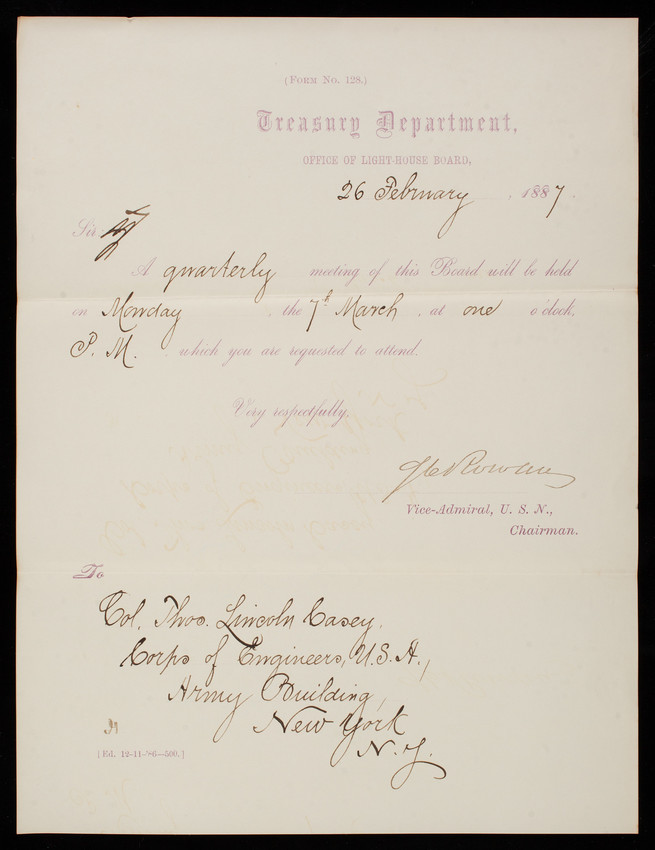 (FORM NO. 128.)
Treasury Department,
OFFICE OF LIGHT-HOUSE BOARD,
26 February, 1887.
Sir:
A quarterly meeting of this Board will be held
on Monday, the 7th March, at one o'clock,
P. M. which you are requested to attend.
Very respectfully,
Rowan
Vice-Admiral, U. S. N.,
Chairman.
To
Col. Thos. Lincoln Casey,
Corps of Engineers, U.S.A.,
Army Building,
New York
N.Y.
[Ed. 12-11-'86—500.]